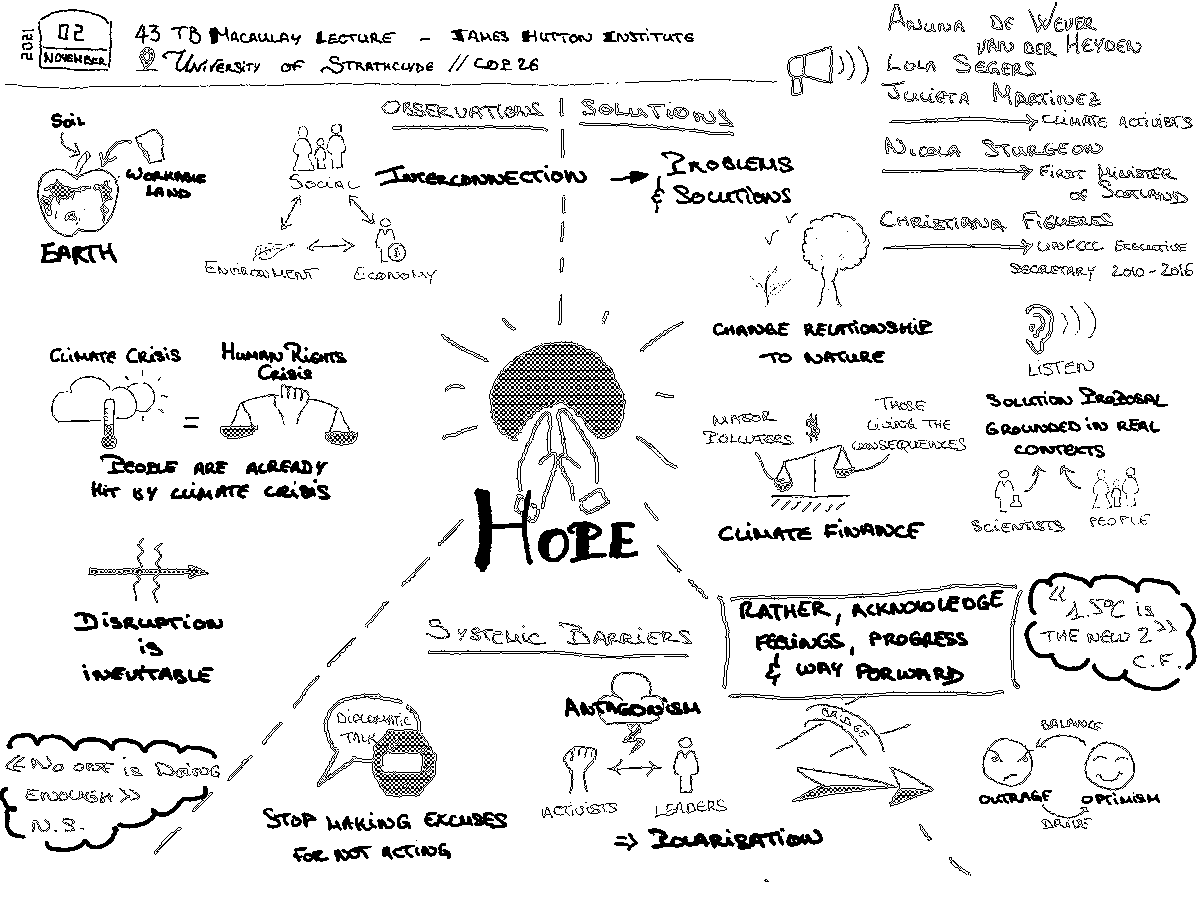 2021
02
NOVEMBER
43 TB MACAULAY LECTURE – JAMES HUTTON INSTITUTE
UNIVERSITY OF STRATHCLYDE // COP 26
ANUNA DE WEVER
VAN DER HEYDEN
LOLA SEGERS
JULIETA MARTINEZ
CLIMATE ACTIVISTS
NICOLA STURGEON
FIRST MINISTER
OF SCOTLAND
CHRISTIANA FIGUERES
UNFCCC EXECUTIVE
SECRETARY 2010-2016
OBSERVATIONS
SOIL
WORKABLE
LAND
EARTH
SOCIAL
ENVIRONMENT
ECONOMY
INTERCONNECTION
CLIMATE CRISIS
=
HUMAN RIGHTS
CRISIS
PEOPLE ARE ALREADY
HIT BY CLIMATE CRISIS
DISRUPTION
IS
INEVITABLE
« NO ONE IS DOING
ENOUGH »
N.S.
SOLUTIONS
PROBLEMS
& SOLUTIONS
CHANGE RELATIONSHIP
TO NATURE
LISTEN
SOLUTION PROPOSAL
GROUNDED IN REAL
CONTEXTS
SCIENTISTS
PEOPLE
MAJOR
POLLUTERS
$
THOSE
LIVING THE
CONSEQUENCES
CLIMATE FINANCE
HOPE
RATHER, ACKNOWLEDGE
FEELINGS, PROGRESS
& WAY FORWARD
« 1.5°C IS
THE NEW 2 »
C.F.
BRIDGE
BALANCE
OUTRAGE
OPTIMISM
DRIVE
SYSTEMIC BARRIERS
DIPLOMATIC
TALK
STOP MAKING EXCUSES
FOR NOT ACTING
ANTAGONISM
ACTIVISTS
LEADERS
=> POLARISATION